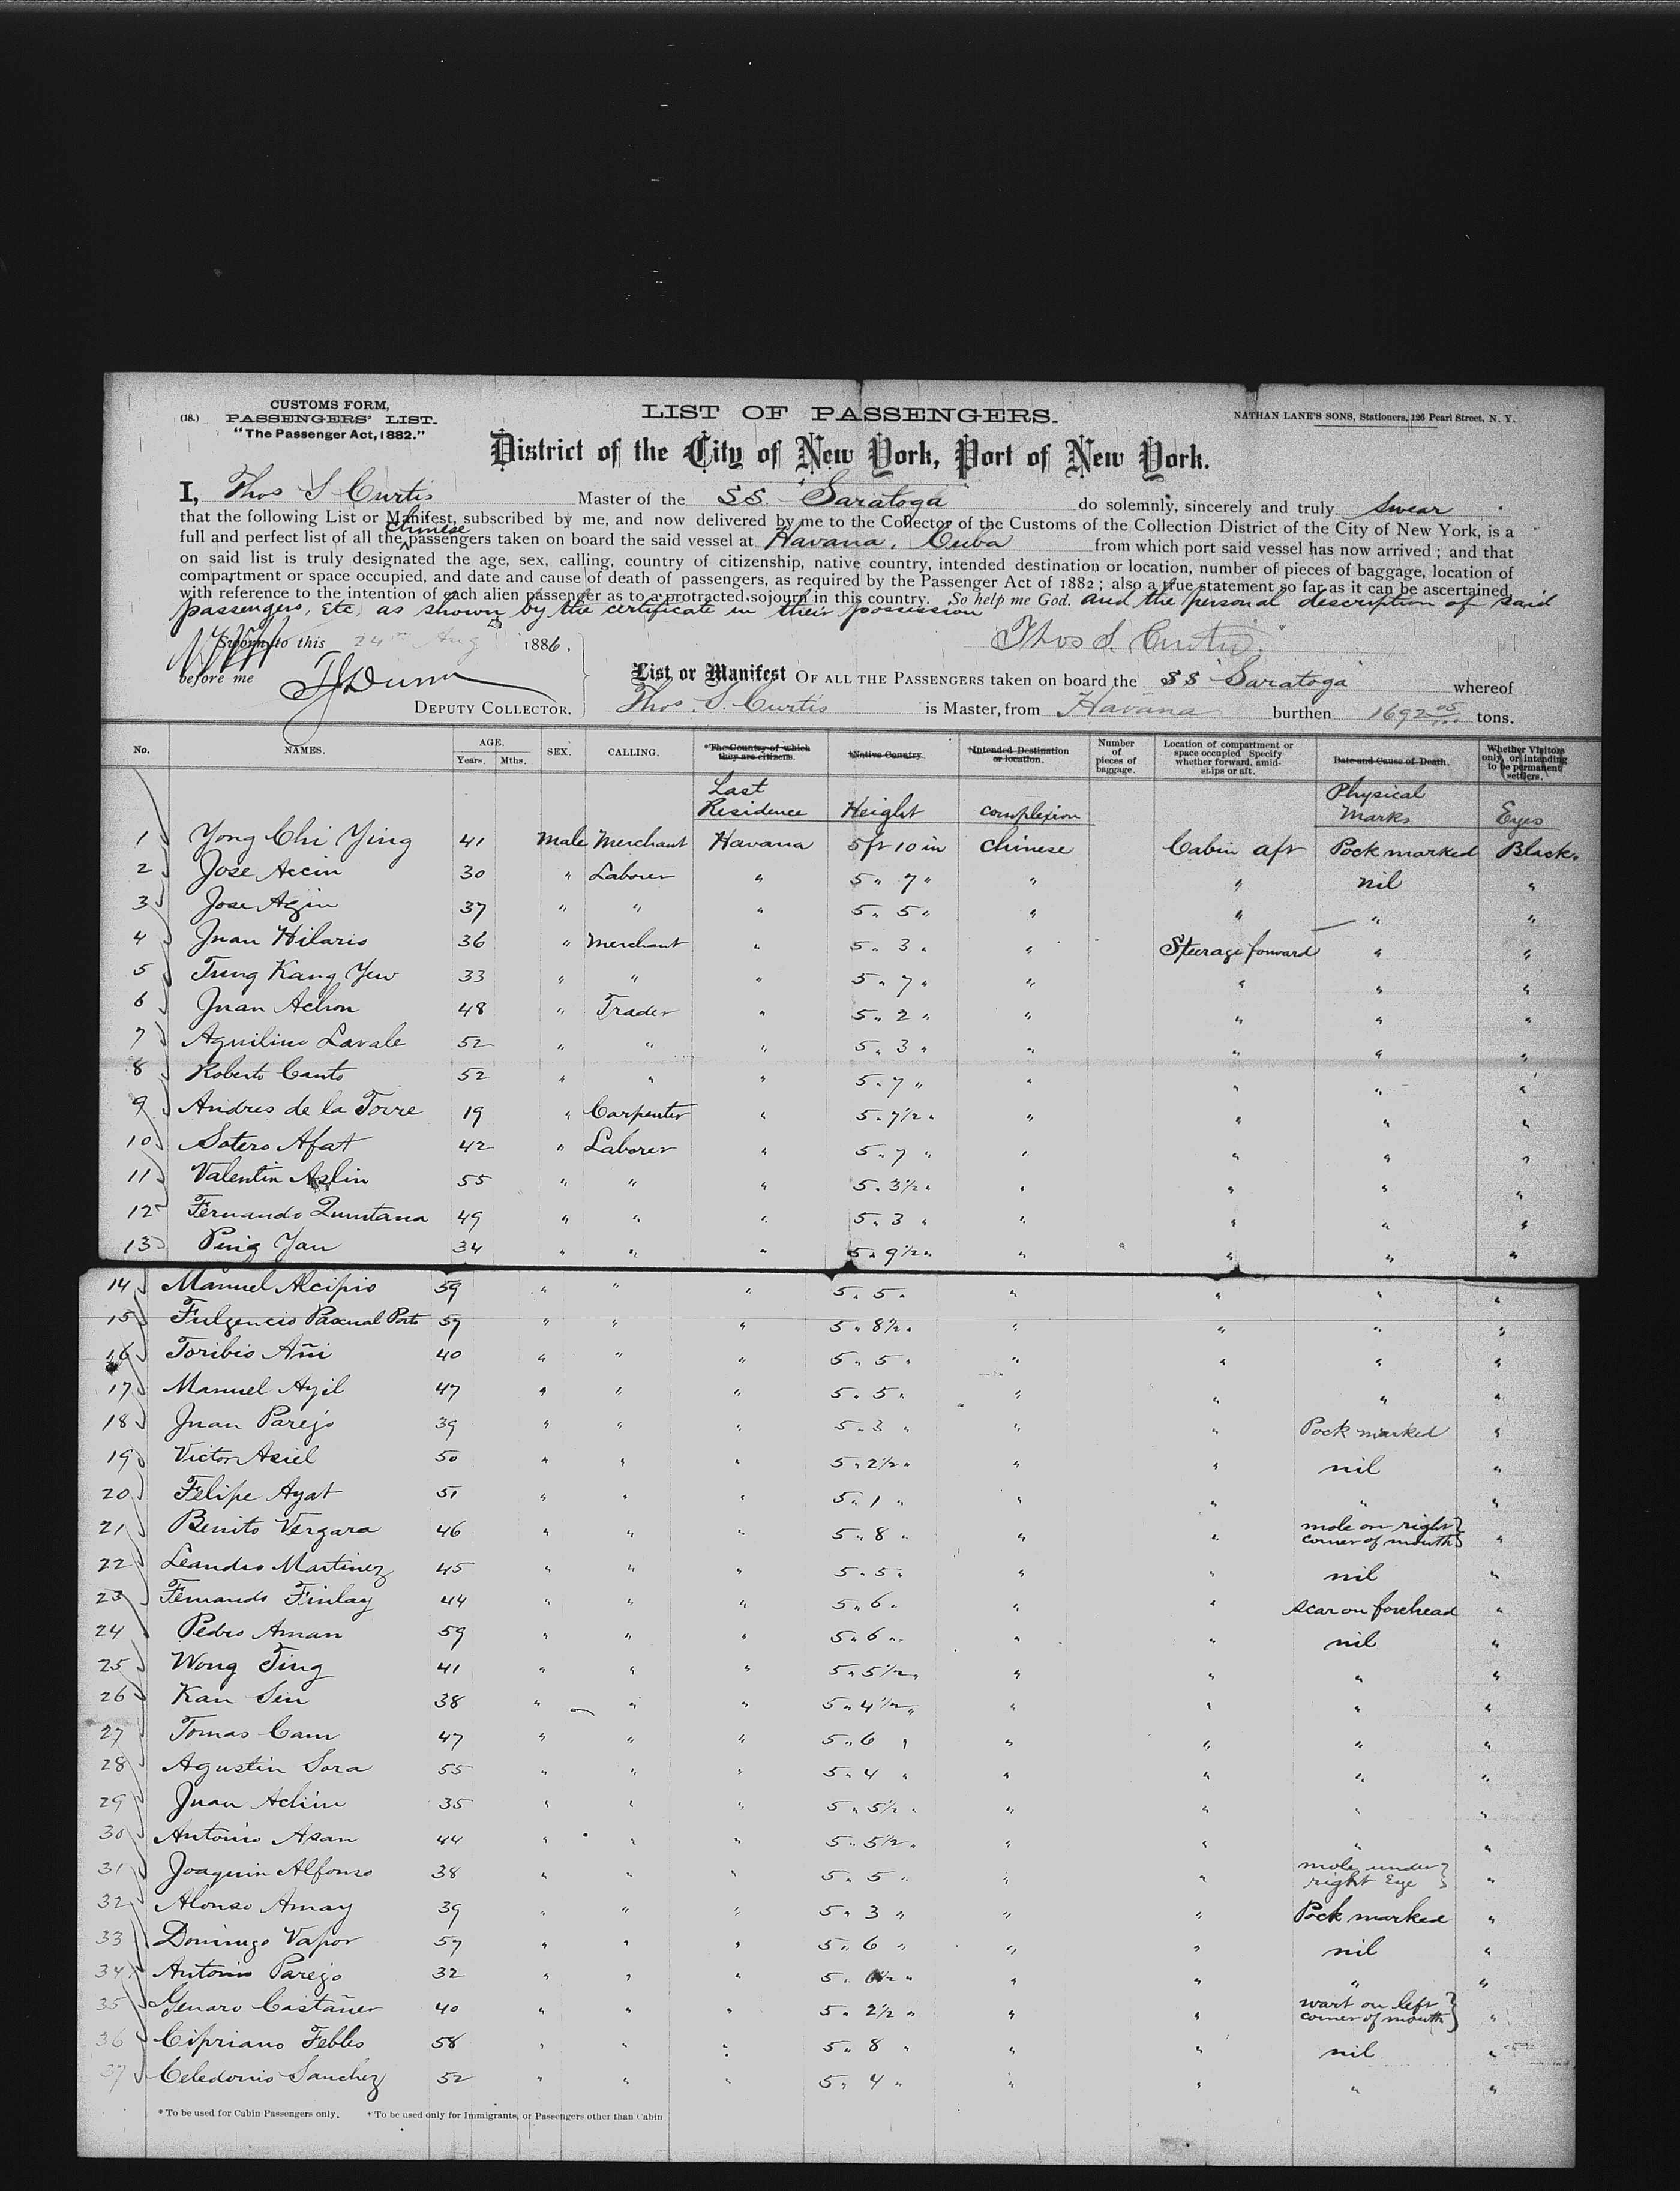 (18.) CUSTOMS FORM,
PASSENGERS' LIST.
"The Passenger Act, 1882."
LIST OF PASSENGERS.
NATHAN LANE'S SONS, Stationers, 126 Pearl Street, N. Y.
District of the City of New York, Port of New York.
I, Thos S Curtis Master of the SS "Saratoga" do solemnly, sincerely and truly swear
that the following List or Manifest, subscribed by me, and now delivered by me to the Collector of the Customs of the Collection District of the City of New York, is a
full and perfect list of all the chinese passengers taken on board the said vessel at Havana, Cuba from which port said vessel has now arrived; and that
on said list is truly designated the age, sex, calling, country of citizenship, native country, intended destination or location, number of pieces of baggage, location of
compartment or space occupied, and date and cause of death of passengers, as required by the Passenger Act of 1882; also a true statement so far as it can be ascertained
with reference to the intention of each alien passenger as to a protracted sojourn in this country. So help me God. and the personal description of said
passengers, Etc, as shown by the certificate in their possession
Sworn to this 24th Aug 1886.
Thos S. Curtis
before me
DEPUTY COLLECTOR.
List or Manifest OF ALL THE PASSENGERS taken on board the SS "Saratoga" whereof
Thos. S. Curtis is Master, from Havana burthen 1692 05/100 tons.
No. NAMES. AGE. Years. Mths. SEX. CALLING. *The Country of which they are citizens. †Native Country. †Intended Destination or location. Number of pieces of baggage. Location of compartment or space occupied Specify whether forward, amidships or aft. Date and Cause of Death. Whether Visitors only, or intending to be permanent settlers.
Last Residence Height complexion Physical Marks Eyes
1 Yong Chi Ying 41 Male Merchant Havana 5 ft 10 in Chinese Cabin aft Pock marked Black.
2 Jose Accin 30 " Laborer " 5 " 7 " " " nil "
3 Jose Agin 37 " " " 5 " 5 " " " " "
4 Juan Hilario 36 " Merchant " 5 " 3 " " Steerage forward " "
5 Tung Kang Yew 33 " " " 5 " 7 " " " " "
6 Juan Achon 48 " Trader " 5 " 2 " " " " "
7 Aquilino Lavale 52 " " " 5 " 3 " " " " "
8 Roberto Canto 52 " " " 5 " 7 " " " " "
9 Andres de la Torre 19 " Carpenter " 5 " 7½ " " " " "
10 Sotero Afat 42 " Laborer " 5 " 7 " " " " "
11 Valentin Aslin 55 " " " 5 " 3½ " " " " "
12 Fernando Quintana 49 " " " 5 " 3 " " " " "
13 Ping Yan 34 " " " 5 " 9½ " " " " "
14 Manuel Alcipio 59 " " " 5 " 5 " " " " "
15 Fulgencio Pascual Porto 59 " " " 5 " 8½ " " " " "
16 Toribio Añi 40 " " " 5 " 5 " " " " "
17 Manuel Ayil 47 " " " 5 " 5 " " " " "
18 Juan Parejo 39 " " " 5 " 3 " " " Pock marked "
19 Victor Asiel 50 " " " 5 " 2½ " " " nil "
20 Felipe Ayat 51 " " " 5 " 1 " " " " "
21 Benito Vergara 46 " " " 5 " 8 " " " mole on right corner of mouth "
22 Leandro Martinez 45 " " " 5 " 5 " " " nil "
23 Fernando Finlay 44 " " " 5 " 6 " " " scar on forehead "
24 Pedro Aman 59 " " " 5 " 6 " " " nil "
25 Wong Ting 41 " " " 5 " 5½ " " " " "
26 Kan Sen 38 " " " 5 " 4½ " " " " "
27 Tomas Cam 47 " " " 5 " 6 " " " " "
28 Agustin Sora 55 " " " 5 " 4 " " " " "
29 Juan Achin 35 " " " 5 " 5½ " " " " "
30 Antonio Asan 44 " " " 5 " 5½ " " " " "
31 Joaquin Alfonso 38 " " " 5 " 5 " " " mole under right Eye "
32 Alonso Amay 39 " " " 5 " 3 " " " Pock marked "
33 Domingo Vapor 57 " " " 5 " 6 " " " nil "
34 Antonio Parejo 32 " " " 5 " " " " " "
35 Genaro Castañer 40 " " " 5 " 2½ " " " wart on left corner of mouth "
36 Cipriano Febles 58 " " " 5 " 8 " " " nil "
37 Celedonio Sanchez 52 " " " 5 " 4 " " " " "
* To be used for Cabin Passengers only. † To be used only for Immigrants, or Passengers other than Cabin